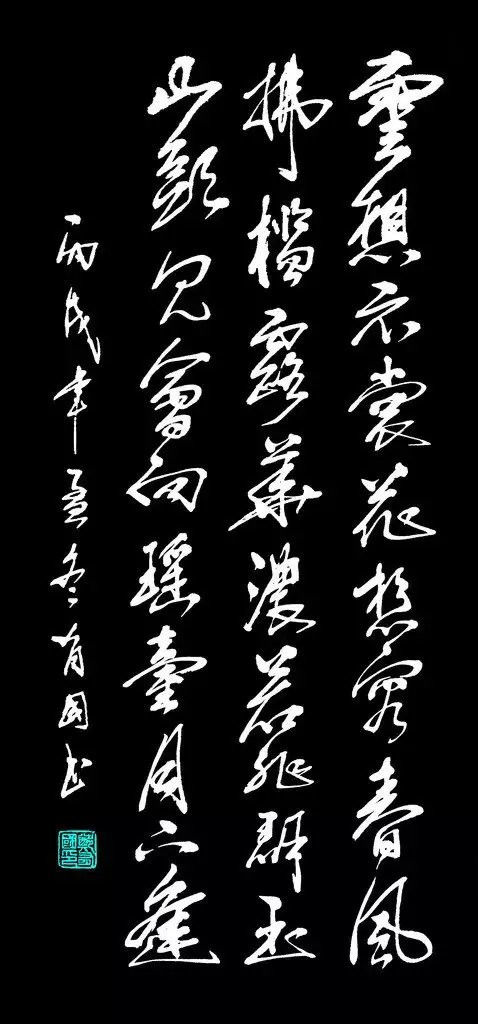 雲想衣裳花想容春風
拂檻露華濃若非群玉
山頭見會向瑤臺月下逢
丙戌年孟冬國书